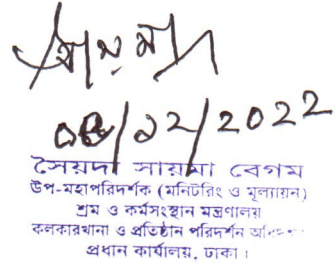 সায়মা
০৫/১২/2022
সৈয়দা সায়মা বেগম
উপ-মহাপরিদর্শক (মনিটরিং ও মূল্যায়ন)
শ্রম ও কর্মসংস্থান মন্ত্রণালয়
কলকারখানা ও প্রতিষ্ঠান পরিদর্শন
প্রধান কার্যালয়, ঢাকা।